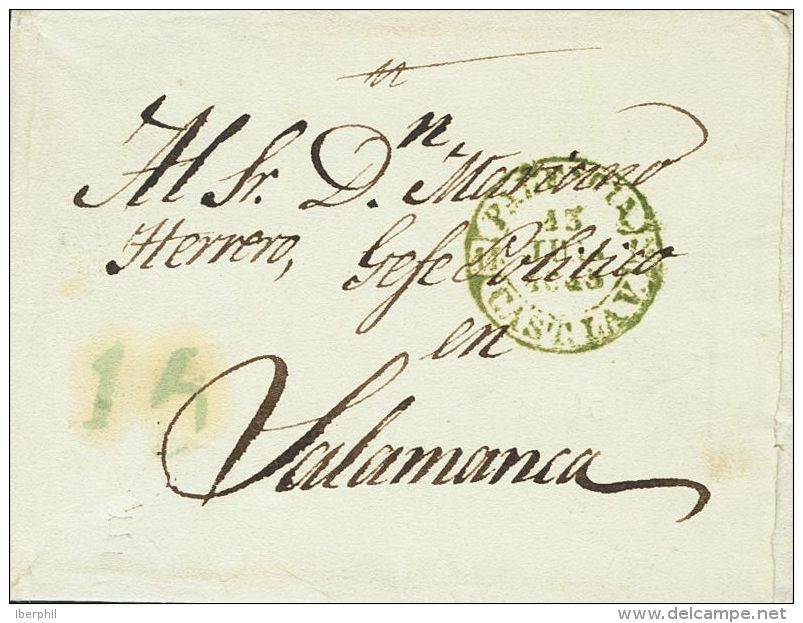 Al Sr. Dn. Mariano
Herrero, Gefe Politico
en
Salamanca
15
13
CAST. LA V.
Iberphil
delcampe.net